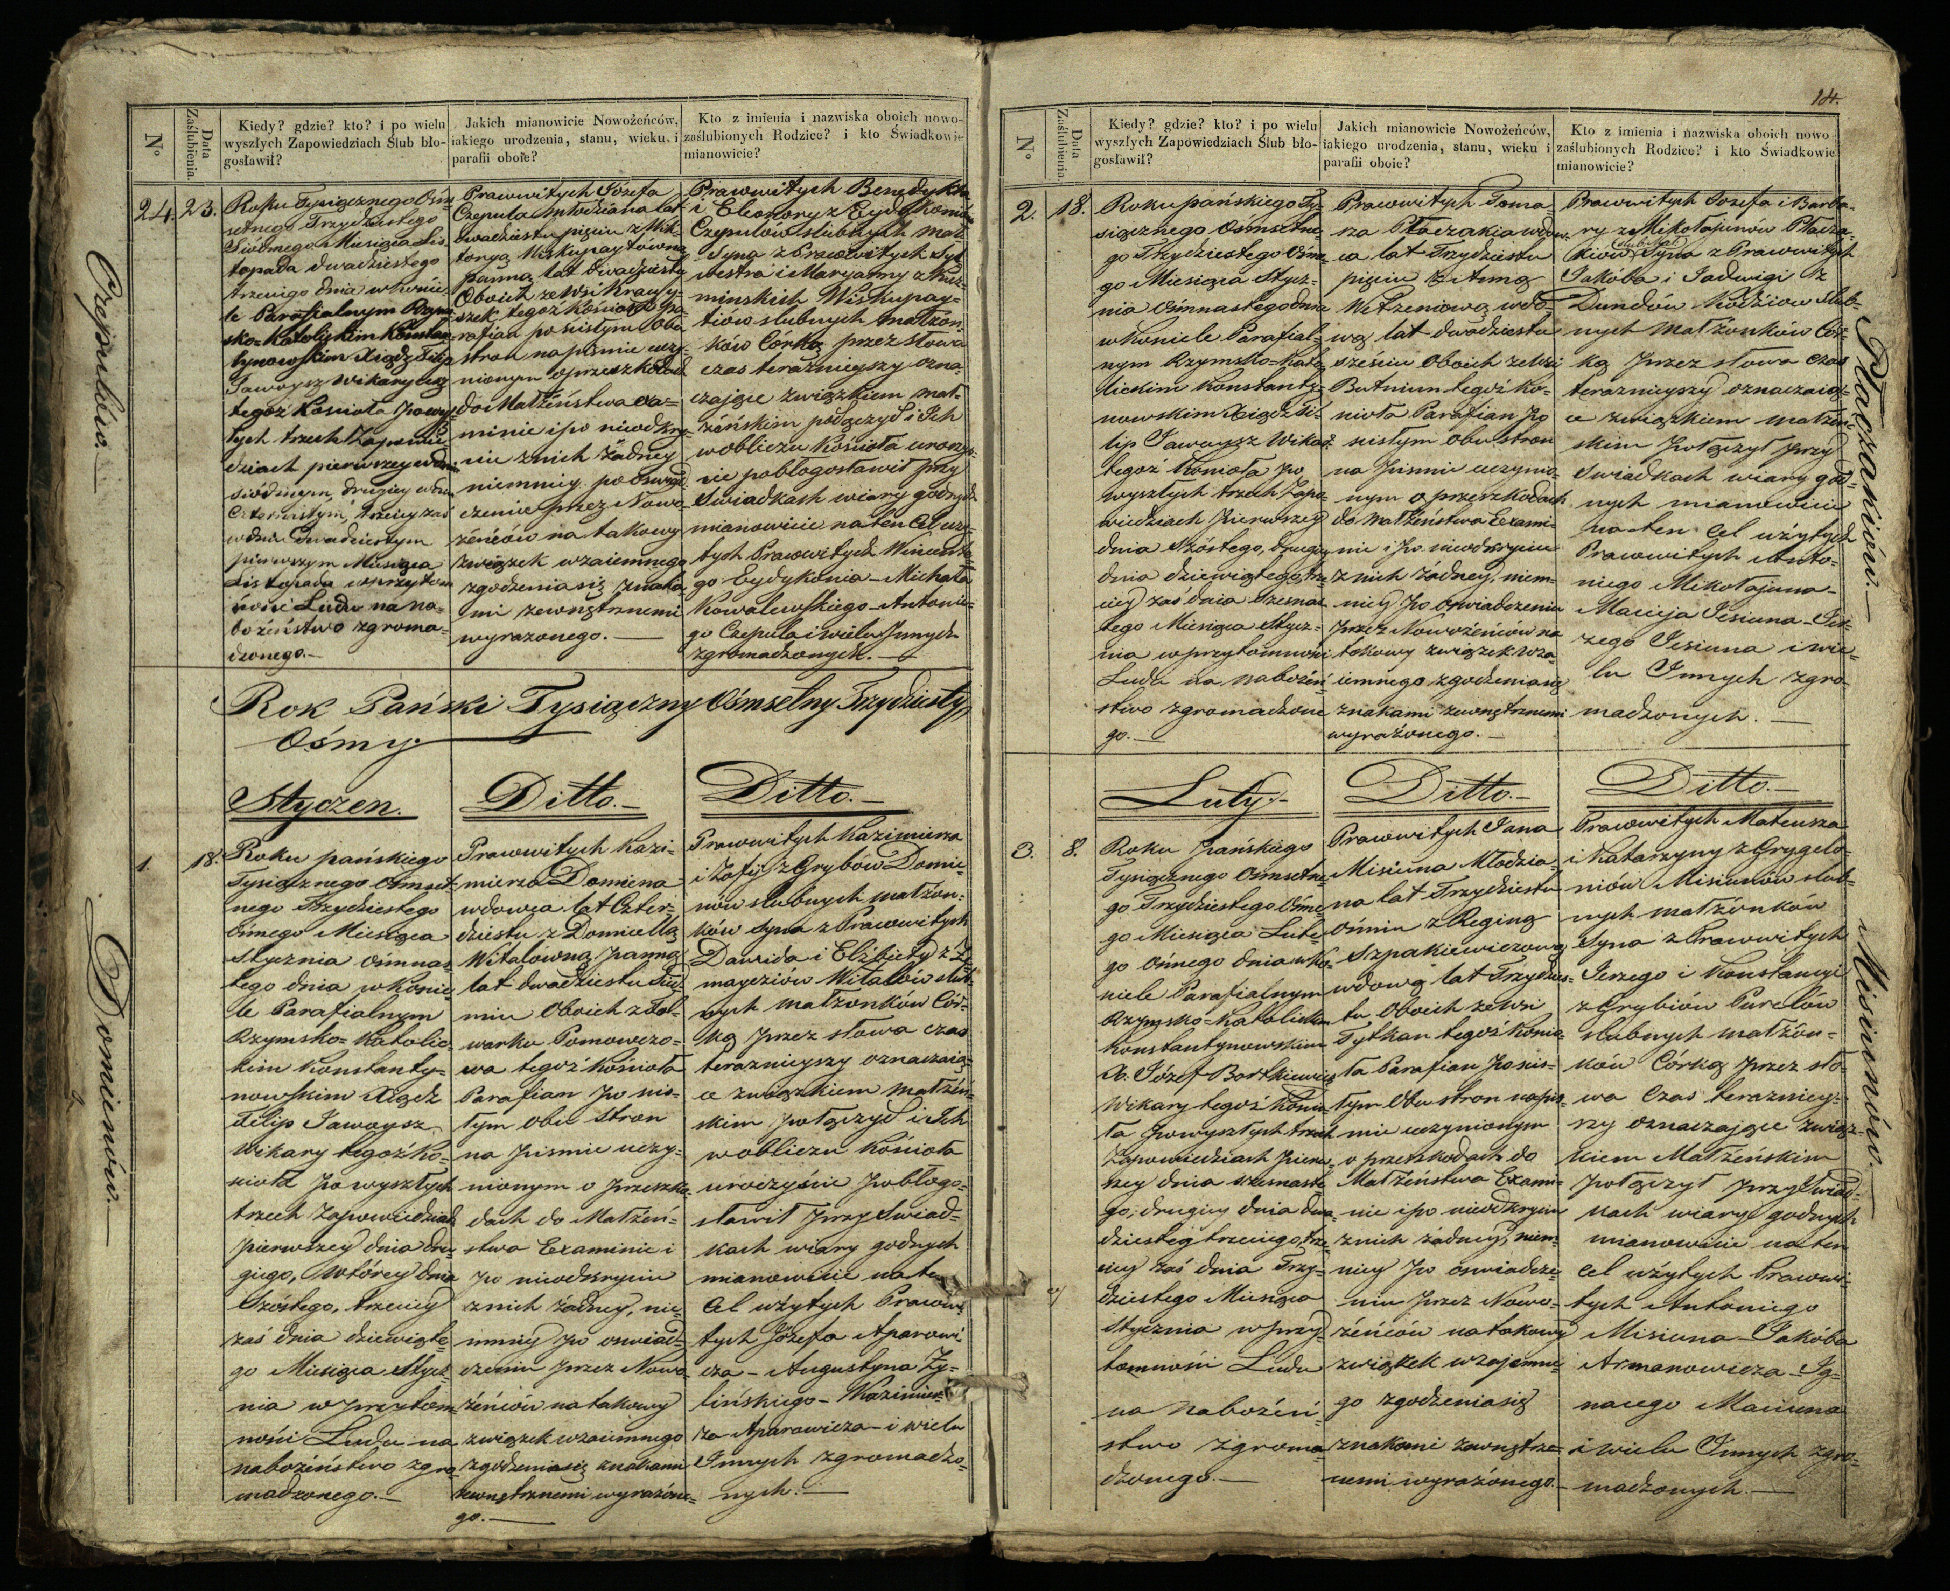 Nº
Data Zaślubienia.
Kiedy? gdzie? kto? i po wielu
wyszłych Zapowiedziach Ślub bło-
gosławił?
Jakich mianowicie Nowożeńców,
iakiego urodzenia, stanu, wieku, i
parafii oboie?
Kto z imienia i nazwiska oboich nowo-
zaślubionych Rodzice? i kto Świadkowie
mianowicie?
Czepulów.
24.
23.
Roku Tysiącznego Ośm
setnego Trzydziestego
Siódmego Miesiąca Lis
topada dwadziestego
trzeciego dnia w Kościele
Parafialnym Rzym
sko-Katolickim Konstan
tynowskim Xiądz Filip
Jawoysz Wikary
tegoż Kościoła po wysz
łych trzech Zapowie
dziach pierwszey w dniu
siódmym, drugiey w dniu
czternastym, trzeciey zaś
w dniu dwudziestym
pierwszym Miesiąca
Listopada w przytom
ności Ludu na na-
bożeństwo zgroma-
dzonego.
Prawowitych Józefa
Czepula Młodziana lat
dwadziestu pięciu z Wik-
toryą Wiskupaytówną
panną lat dwadziestu
Oboich ze Wsi
tegoż Kościoła Pa-
rafian po ścisłym obu
stron na piśmie uczy-
nionym o przeszkodach
do Małżeństwa exa-
minie i po nieodkry-
ciu z nich żadney
niemniey po oświad
czeniu przez Nowo
żeńców na takowy
związek wzaiemnego
zgodzenia się znaka-
mi zewnętrznemi
wyrażonego.
Prawowitych Benedykta
i Eleonory z Eydykoniów
Czepulów ślubnych mał.
Syna z Prawowitych Syl
westra i Maryanny z Kuz-
minskich Wiskupay-
tiów ślubnych małżon
ków Corką przez słowa
czas teraźnieyszy ozna-
czaiące związkiem mał-
żeńskim połączył i Ich
w obliczu Kościoła uroczy-
ście pobłogosławił przy
Świadkach wiary godnych
mianowicie na ten Cel uży-
tych Prawowitych Wincente
go Eydykonia - Michała
Kowalewskiego - Antonie-
go Czepula i wielu Innych
zgromadzonych.
Rok Pański Tysiączny Ośmsetny Trzydziesty
Ośmy.
Styczeń.
Ditto.
Ditto.
Domienów.
1.
18.
Roku pańskiego
Tysiącznego Ośmset-
nego Trzydziestego
Ósmego Miesiąca
Stycznia Ośmnas
tego dnia w Koście
le Parafialnym
Rzymsko-Katolic-
kim Konstanty-
nowskim Xiądz
Filip Jawoysz
Wikary tegoż Ko-
ścioła po wyszłych
trzech Zapowiedziach
pierwszey dnia dru-
giego, wtórey dnia
Szóstego, trzeciey
zaś dnia dziewiąte-
go Miesiąca Stycz-
nia w przytom
ności Ludu na
nabożeństwo zgro-
madzonego.
Prawowitych Kazi-
mierza Domiena
wdowca lat Czter-
dziestu z Domicellą
Witalówną Panną
lat dwadziestu
Oboich z fol-
warku Pomowczo-
wa tegoż Kościoła
Parafian po ścis-
łym obu stron
na piśmie uczy-
nionym o przeszko-
dach do Małżeń-
stwa Examinie i
po nieodkryciu
z nich żadney, nie
mniey po oświad
czeniu przez Nowo
żeńców na takowy
związek wzaiemnego
zgodzenia się znakami
zewnętrznemi wyrażone-
go.
Prawowitych Kazimierza
i Zofii z Grybów Domie-
nów ślubnych małżon-
ków Syna z Prawowitych
Dawida i Elżbiety z
Witalów ślub-
nych małżonków Cór-
ką przez słowa czas
teraznieyszy oznaczaią-
ce związkiem małżeń-
skim połączył i Ich
w obliczu Kościoła
uroczyście pobłogo-
sławił przy Świad-
kach wiary godnych
mianowicie na ten
Cel użytych Prawowi
tych Józefa Aparowi
cza - Augustyna Ży-
lińskiego - Kazimier-
za Aparowicza - i wielu
Innych zgromadzo-
nych.
14.
Nº
Data Zaślubienia.
Kiedy? gdzie? kto? i po wielu
wyszłych Zapowiedziach Ślub bło-
gosławił?
Jakich mianowicie Nowożeńców,
iakiego urodzenia, stanu, wieku i
parafii oboie?
Kto z imienia i nazwiska oboich nowo-
zaślubionych Rodzice? i kto Świadkowie
mianowicie?
Płaczakiów.
2.
18.
Roku pańskiego Ty-
siącznego Ośmsetne-
go Trzydziestego Ósme
go Miesiąca Stycz-
nia Ośmnastego dnia
w Kościele Parafial-
nym Rzymsko-Kato
lickim Konstanty-
nowskim Xiądz Fi-
lip Jawoysz Wikary
tegoż Kościoła po
wyszłych trzech Zapo
wiedziach Pierwszey
dnia Szóstego, drugiey
dnia dziewiątego, trze
ciey zaś dnia Szesnas
tego Miesiąca Stycz-
nia w przytomności
Ludu na Nabożeń-
stwo zgromadzone
go.
Prawowitych Toma-
sza Płaczakia wdow-
ca lat Trzydziestu
pięciu z Anną
Wetzeniową wdo-
wą lat dwadziestu
sześciu Oboich ze Wsi
Butnium tegoż Ko-
ścioła Parafian po
ścisłym obu stron
na piśmie uczynio-
nym o przeszkodach
do Małżeństwa Exami-
nie i po nieodkryciu
z nich żadney, niem-
niey po oświadczeniu
przez Nowożeńców na
takowy związek wza-
iemnego zgodzenia się
znakami zewnętrznemi
wyrażonego.
Prawowitych Józefa i Barba-
ry z Mikołajunów Płacza-
kiów ślub: Mał: Syna z Prawowitych
Jakóba i Jadwigi z
Dundów Kodziow Ślub-
nych Małżonków Cór-
ką przez słowa czas
teraznieyszy oznaczaią-
ce związkiem małżeń
skim połączył przy
Świadkach wiary god-
nych mianowicie
na ten Cel użytych
Prawowitych Anto-
niego Mikołajuna-
Macieja Jesiuna - Je-
rzego Jesiuna i wie-
lu Innych zgro-
madzonych.
Luty.
Ditto.
Ditto.
Misiunów.
3.
8.
Roku Pańskiego
Tysiącznego Ośmsetne
go Trzydziestego Ósme-
go Miesiąca Lute-
go Ósmego dnia w Ko-
ściele Parafialnym
Rzymsko-Katolickim
Konstantynowskim
X. Józef Bortkiewicz
Wikary tegoż Kościo-
ła po wyszłych trzech
Zapowiedziach Pierw-
szey dnia szesnaste
go, drugiey dnia dwa-
dziestego trzeciego, trze-
ciey zaś dnia Trzy-
dziestego Miesiąca
Stycznia w przy-
tomności Ludu
na Nabożeń-
stwo Zgroma-
dzonego.
Prawowitych Jana
Misiuna Młodzia-
na lat Trzydziestu
Ośmiu z Reginą
Szpakiewiczową
wdową lat Trzydzies-
tu Oboich ze Wsi
Tytkan tegoż Kościo
ła Parafian po ścis-
łym Obu stron na piś-
mie uczynionym
o przeszkodach do
Małżeństwa Exami-
nie i po nieodkryciu
z nich żadney, niem-
niey po oświadcze-
niu przez Nowo-
żeńców na takowy
związek wzajemne
go zgodzenia się
znakami zewnętrz-
nemi wyrażonego.
Prawowitych Mateusza
i Katarzyny z Grygelo-
niów Misiunów ślub-
nych małżonków
Syna z Prawowitych
Jerzego i Konstancyi
z Grybiów Purelów
ślubnych małżon-
ków Córką przez sło-
wa Czas terazniey-
szy oznaczające związ-
kiem Małżeńskim
połączył przy Świad-
kach wiary godnych
mianowicie na ten
Cel użytych Prawowi-
tych Antoniego
Misiuna - Jakóba
Armanowicza - Ig-
nacego Maciuna
i wielu Innych zgro-
madzonych.